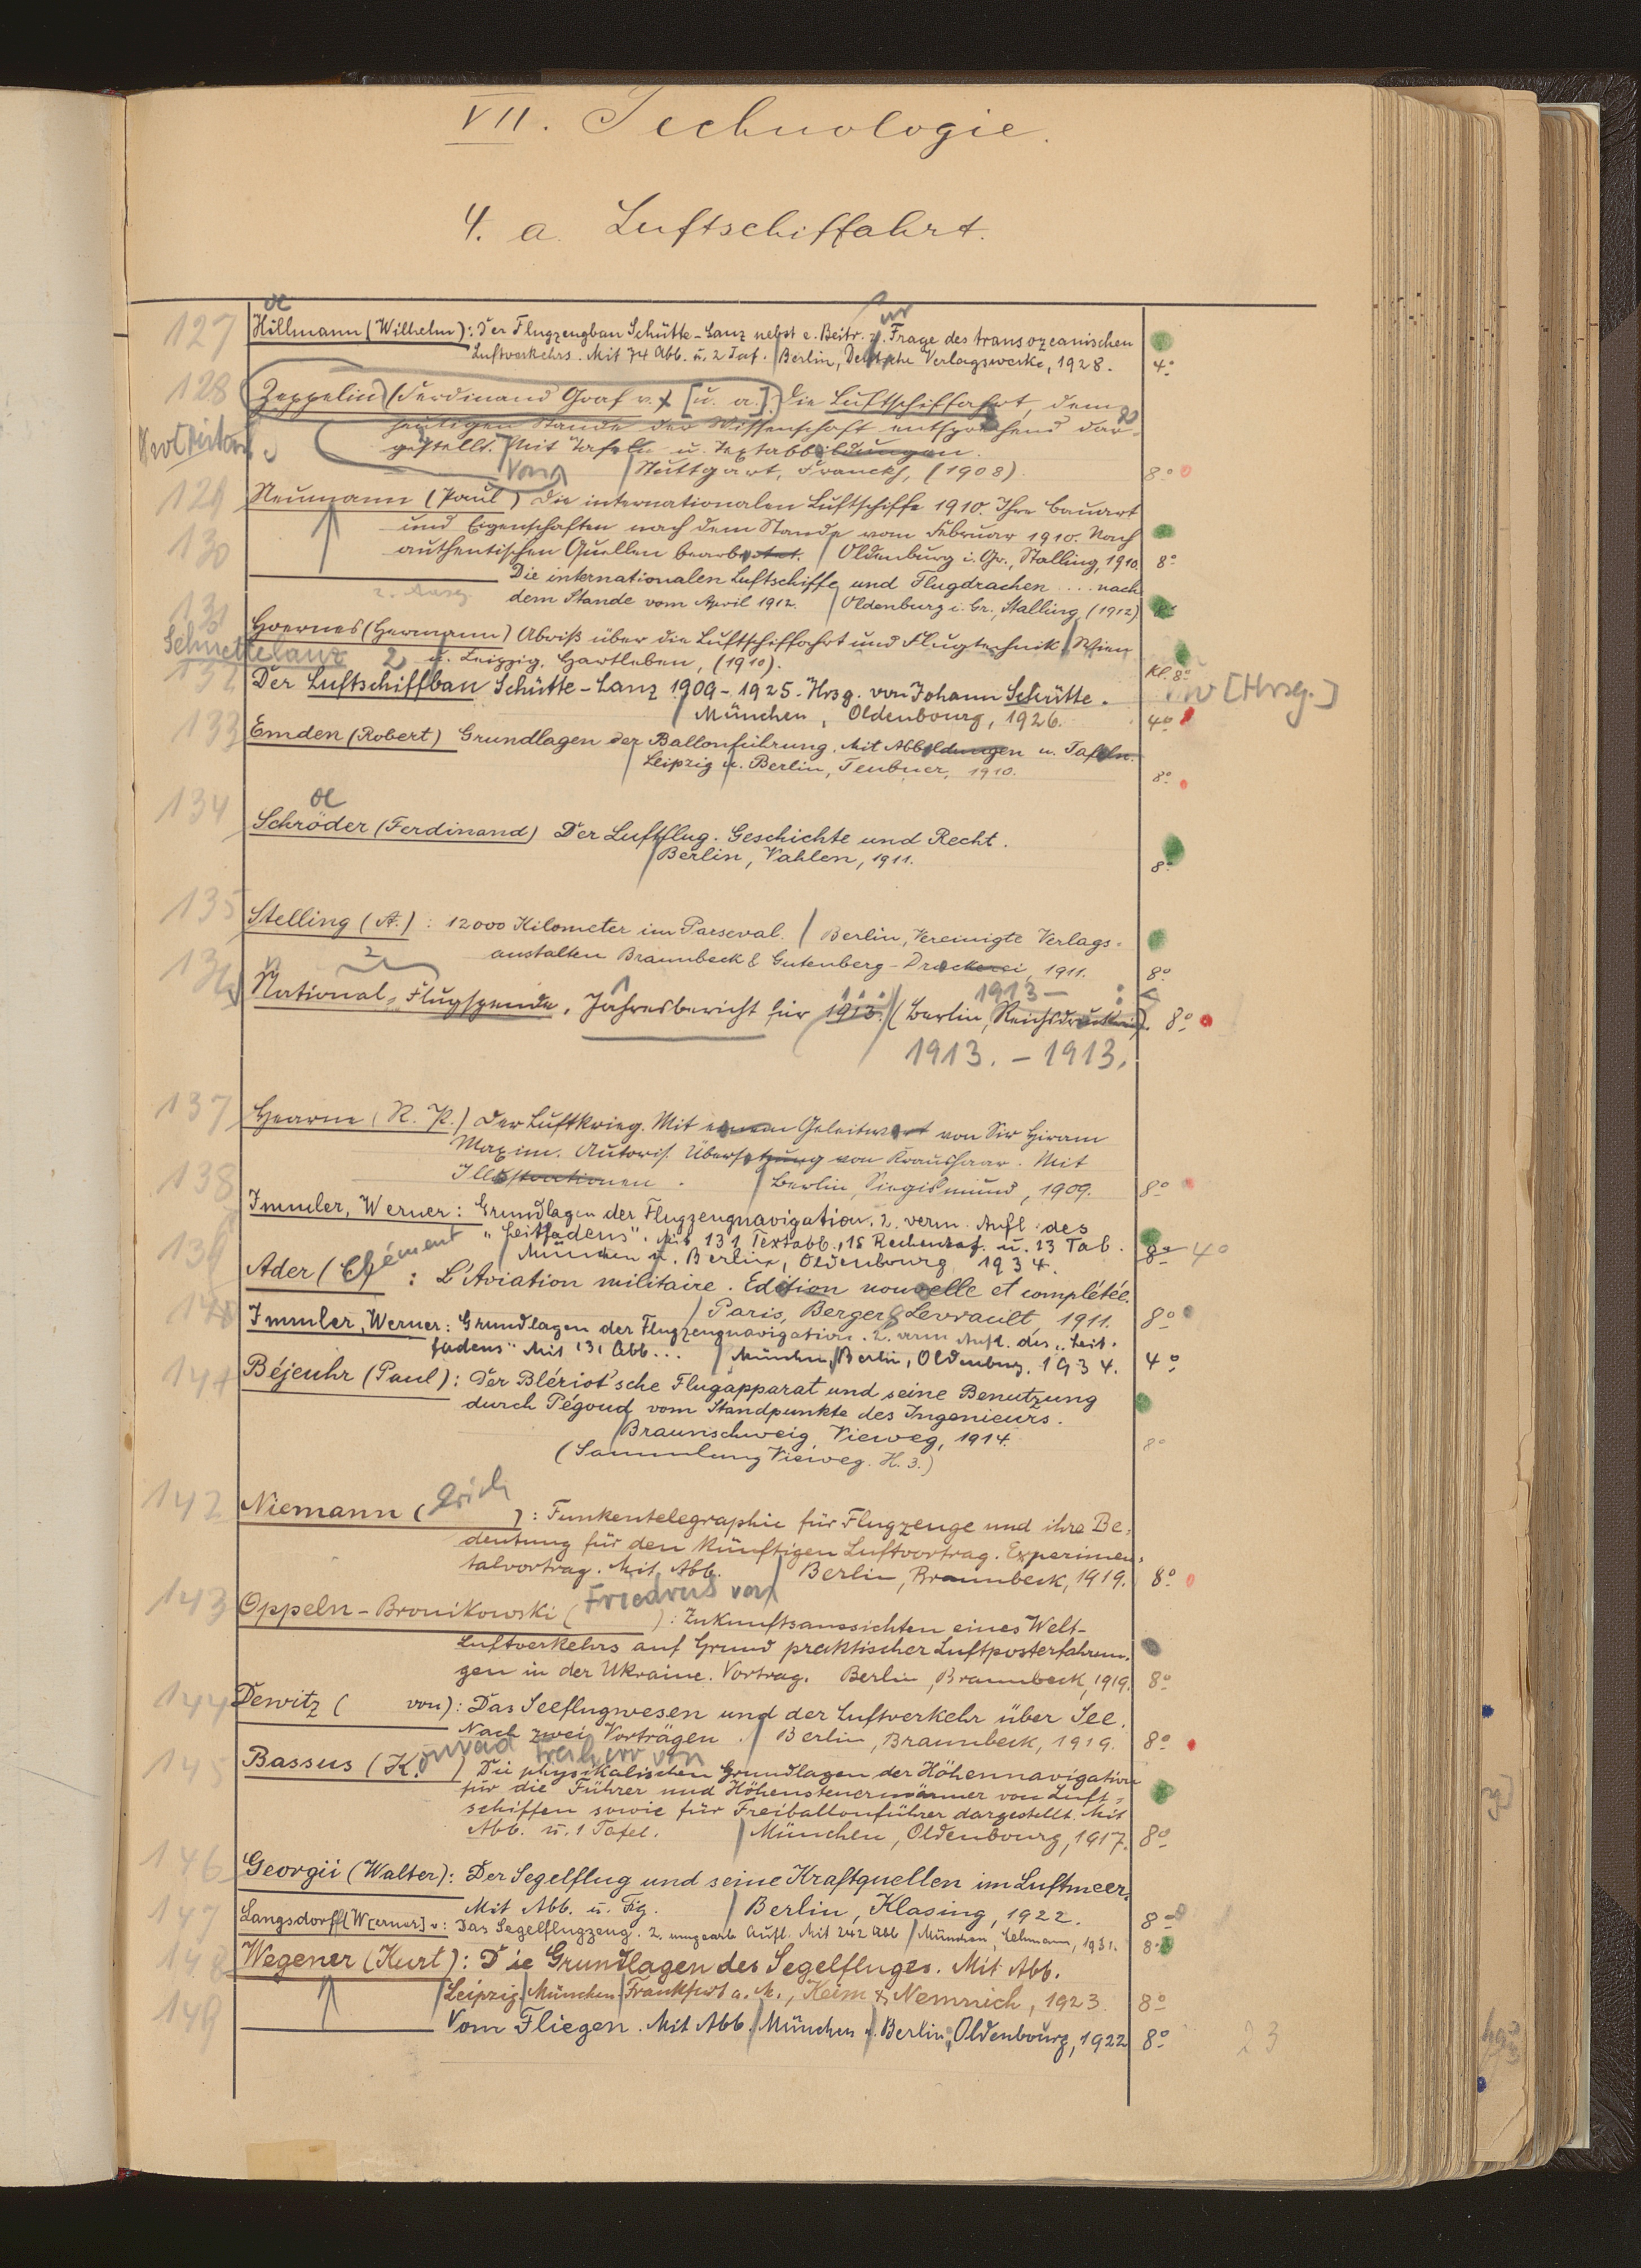 VII. Technologie.
4. a. Luftschiffahrt.
127 Hillmann (Wilhelm): Der Flugzeugbau Schütte-Lanz nebst e. Beitr. z. Frage des transozeanischen
Luftverkehrs. Mit 74 Abb. u. 2 Taf. Berlin, Deutsche Verlagswerke, 1928. 4°
128 Zeppelin (Ferdinand Graf v.) [u. a.] Die Luftschiffahrt, dem
heutigen Stande der Wissenschaft entsprechend dar-
gestellt. Mit Tafeln u. Textabbildungen.
Von Stuttgart, Franckh, (1908). 8°
129 Neumann (Paul) Die internationalen Luftschiffe 1910. Ihre Bauart
und Eigenschaften nach dem Stande vom Februar 1910. Nach
130 authentischen Quellen bearbeitet. / Oldenburg i. Gr., Stalling, 1910. 8°
Die internationalen Luftschiffe und Flugdrachen ... nach
2. Ausg. dem Stande vom April 1912. / Oldenburg i. Gr., Stalling, (1912) 8°
131 Hoernes (Hermann) Abriß über die Luftschiffahrt und Flugtechnik / Wien
u. Leipzig, Hartleben, (1910). Kl. 8°
132 Der Luftschiffbau Schütte-Lanz 1909-1925. Hrsg. von Johann Schütte. [Hrsg.]
/ München, Oldenbourg, 1926. 4°
133 Emden (Robert) Grundlagen der Ballonführung. Mit Abbildungen u. Tafeln.
/ Leipzig u. Berlin, Teubner, 1910. 8°
134 Schröder (Ferdinand) Der Luftflug. Geschichte und Recht.
/ Berlin, Vahlen, 1911. 8°
135 Stelling (A.): 12000 Kilometer im Parseval. / Berlin, Vereinigte Verlags-
anstalten Braunbeck & Gutenberg-Druckerei, 1911. 8°
136 National-Flugspende. Jahresbericht für 1913. (Berlin, Reichsdruckerei). 8°
1913 —
1913. - 1913.
137 Hearne (R. P.) Der Luftkrieg. Mit einem Geleitwort von Sir Hiram
Maxim. Autoris. Übersetzung von Kraushaar. Mit
138 Illustrationen. / Berlin, Siegismund, 1909. 8°
Immler, Werner: Grundlagen der Flugzeugnavigation. 2. verm. Aufl. des
"Leitfadens". Mit 131 Textabb., 18 Rechentaf. u. 23 Tab. 8° 4°
/ München u. Berlin, Oldenbourg 1934.
139 Ader (Clément): L'Aviation militaire. Edition nouvelle et complétée.
/ Paris, Berger & Levrault, 1911. 8°
140 Immler, Werner: Grundlagen der Flugzeugnavigation. 2. verm. Aufl. des "Leit-
fadens" Mit 131 Abb... / München, Berlin, Oldenburg. 1934. 4°
141 Béjeuhr (Paul): Der Blériot'sche Flugapparat und seine Benutzung
durch Pégoud vom Standpunkte des Ingenieurs.
/ Braunschweig, Vieweg, 1914. 8°
(Sammlung Vieweg. H. 3.)
142 Niemann (Erich): Funkentelegraphie für Flugzeuge und ihre Be-
deutung für den künftigen Luftvortrag. Experimen-
talvortrag. Mit Abb. / Berlin, Braunbeck, 1919. 8°
143 Oppeln-Bronikowski (Friedrich von): Zukunftsaussichten eines Welt-
luftverkehrs auf Grund praktischer Luftposterfahrun-
gen in der Ukraine. Vortrag. Berlin, Braunbeck, 1919. 8°
144 Dewitz ( von): Das Seeflugwesen und der Luftverkehr über See.
Nach zwei Vorträgen. / Berlin, Braunbeck, 1919. 8°
145 Bassus (Konrad Freiherr von) Die physikalischen Grundlagen der Höhennavigation
für die Führer und Höhensteuermänner von Luft-
schiffen sowie für Freiballonführer dargestellt. Mit
Abb. u. 1 Tafel. / München, Oldenbourg, 1917. 8°
146 Georgii (Walter): Der Segelflug und seine Kraftquellen im Luftmeer.
Mit Abb. u. Fig. / Berlin, Klasing, 1922. 8°
147 Langsdorff (W[erner] v.: Das Segelflugzeug. 2. umgearb. Aufl. Mit 242 Abb / München, Lehmann, 1931. 8°
148 Wegener (Kurt): Die Grundlagen des Segelfluges. Mit Abb.
/ Leipzig, München, Frankfurt a. M., Keim & Nemnich, 1923. 8°
149 Vom Fliegen. Mit Abb. / München u. Berlin, Oldenbourg, 1922 8° 23